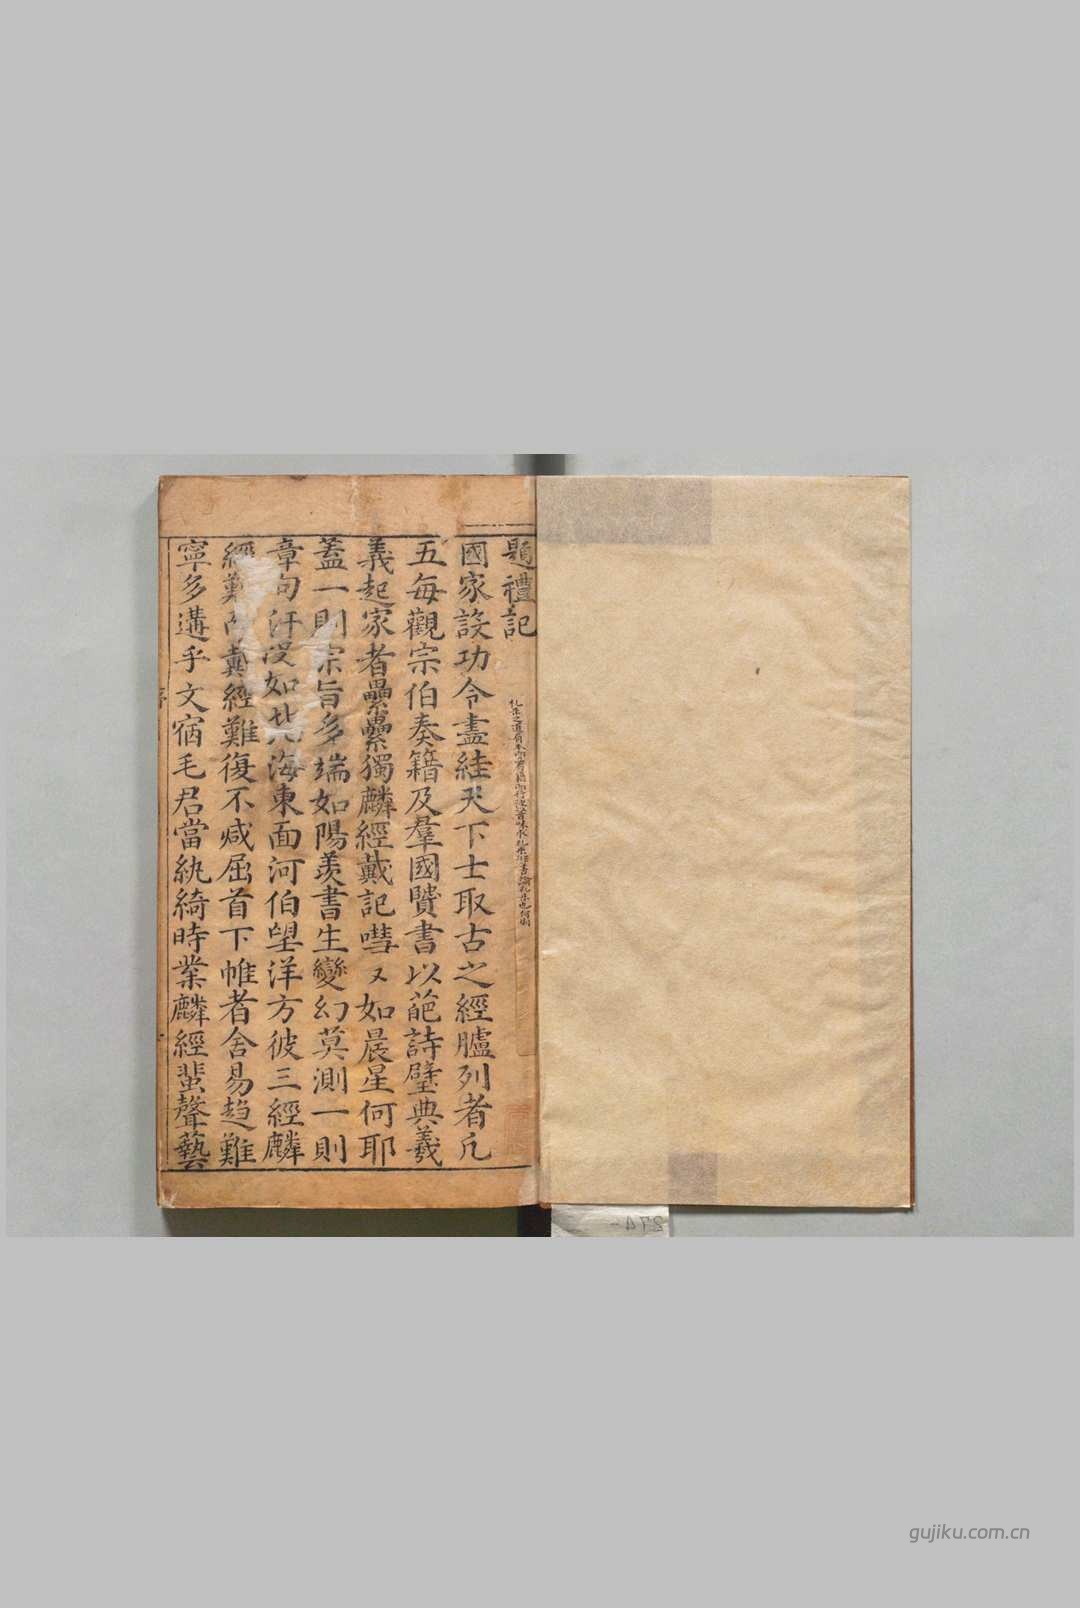 題禮記
國家設功令盡絓天下士取古之經臚列者凡
五每觀宗伯奏籍及羣國賢書以葩詩璧典羲
義起家者纍纍獨麟經戴記嘒又如晨星何耶
蓋一則宗旨多端如陽羨書生變幻莫測一則
章句汗沒如北海東面河伯望洋方彼三經麟
經難戴經難復不減屈首下帷者舍易趨難
寧多遘乎文宿毛君當紈綺時業麟經蜚聲藝
序
274
gujiku.com.cn